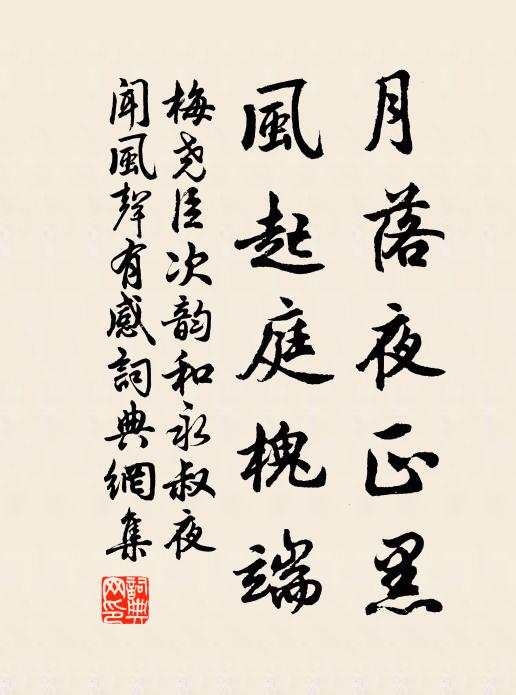 月落夜正黑
風起庭槐端
梅尧臣次韵和永叔夜
聞風聲有感詞典網集
詞典
网印